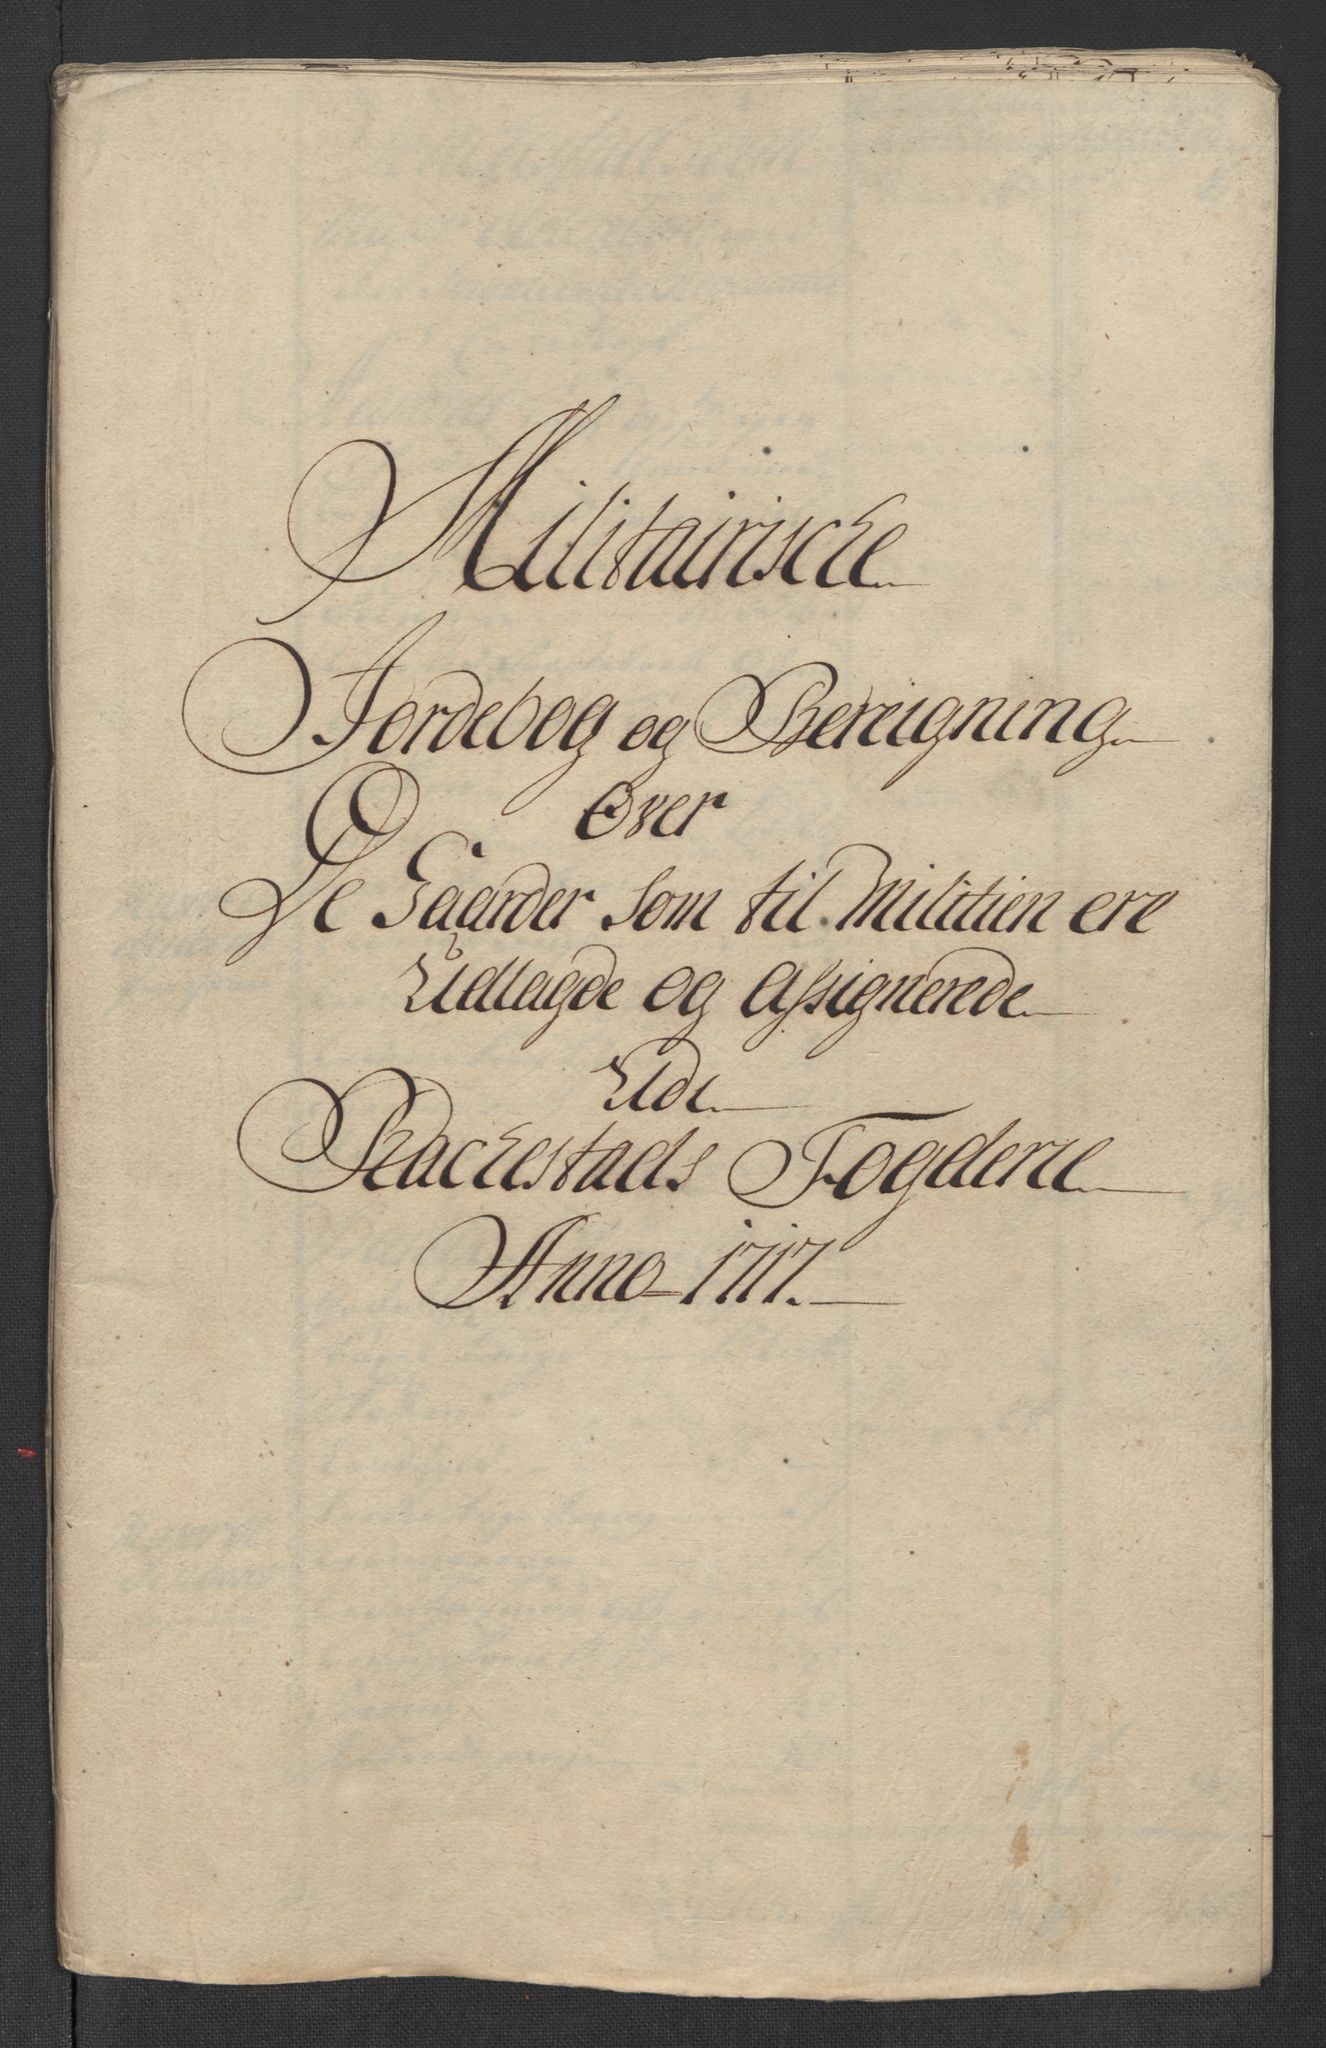 Militairische
Jordebog og Bereigning
Over
De Gaarder som til Militien ere
Udlagde og Assignerede
Udi
Rackestads Fogderie
Anno 1717.